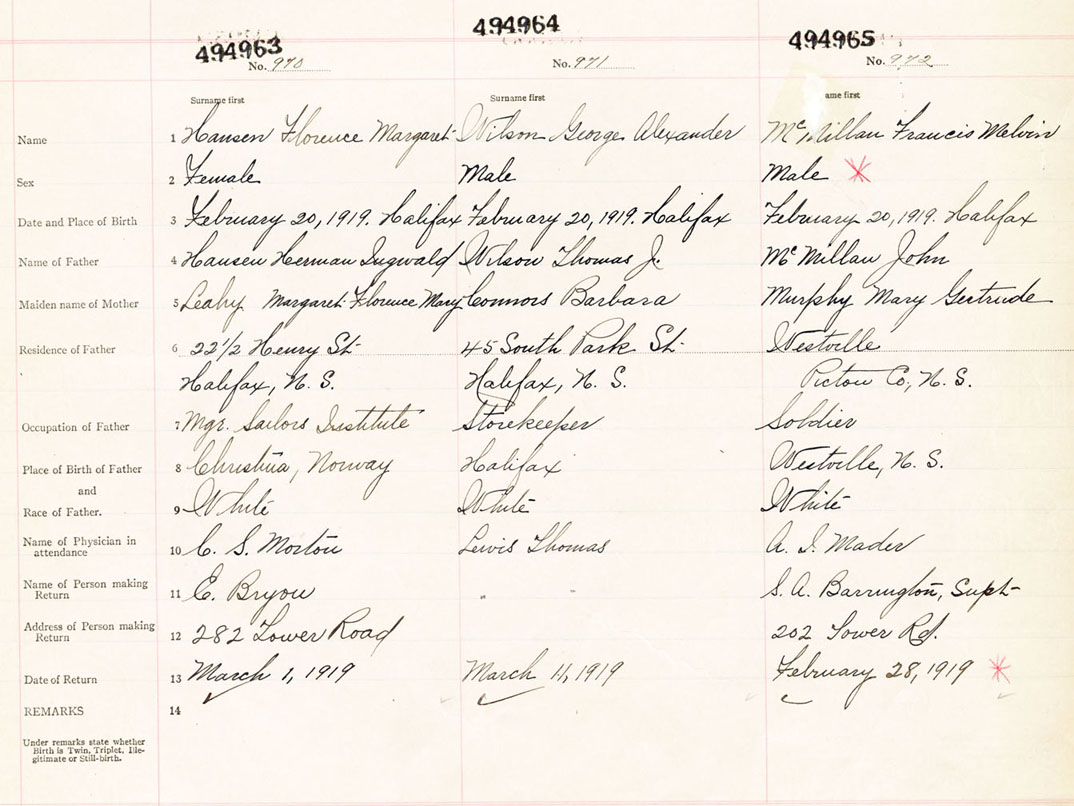 494963 494964 494965
No. 970 No. 971 No. 972
Surname first Surname first ame first
Name 1 Hansen Florence Margaret Wilson George Alexander McMillan Francis Melvin
Sex 2 Female Male Male
Date and Place of Birth 3 February 20, 1919. Halifax February 20, 1919. Halifax February 20, 1919. Halifax
Name of Father 4 Hansen Herman Ingwald Wilson Thomas J. McMillan John
Maiden name of Mother 5 Leahy Margaret Florence Mary Connors Barbara Murphy Mary Gertrude
Residence of Father 6 22 1/2 Henry St 45 South Park St. Westville
Halifax, N. S. Halifax, N. S. Pictou Co, N. S.
Occupation of Father 7 Mgr. Sailors Institute Storekeeper Soldier
Place of Birth of Father 8 Christina, Norway Halifax Westville, N. S.
and
Race of Father. 9 White White White
Name of Physician in
attendance 10 C. S. Morton Lewis Thomas A. I. Mader
Name of Person making
Return 11 E. Bryou " " S. A. Barrington, Supt
Address of Person making
Return 12 282 Tower Road 202 Tower Rd.
Date of Return 13 March 1, 1919 March 11, 1919 February 28, 1919
REMARKS 14
Under remarks state whether
Birth is Twin, Triplet, Ille-
gitimate or Still-birth.